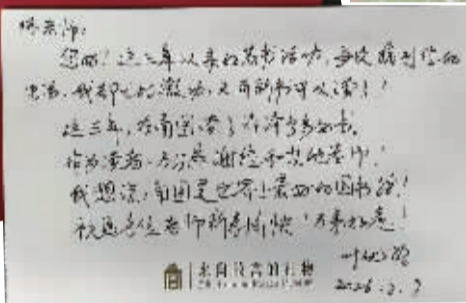 老师:
您好!这三年以来的荐书活动,每次接到您的
电话,我都七的激动,又有新书可以读了!
这三年,在南图读了许许多多的书。
作为读者,十分感谢您和其他老师!
我想说,南图是世界上最好的图书馆!
祝愿各位老师新春愉快!万事如意!
来自 的礼物
2026.2.